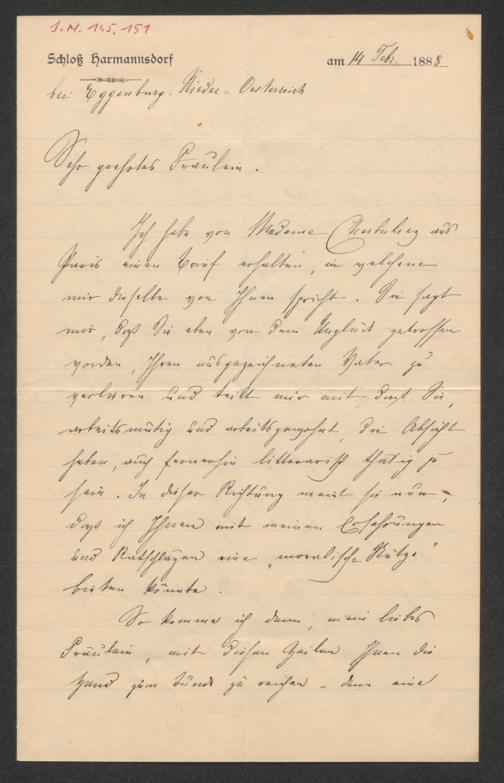 I.N. 145.151
Schloß Harmannsdorf am 14 Feb. 1888.
bei Eggenburg. Nieder=Oesterreich
Sehr geehrtes Fräulein.
Ich habe von Madame Cherbuliez aus
Paris einen Brief erhalten, in welchem
mir dieselbe von Ihnen spricht. Sie sagt
mir, daß Sie eben von dem Unglück getroffen
worden, Ihren ausgezeichneten Vater zu
verlieren und teilt mir mit daß Sie,
arbeitsmutig und arbeitsgewohnt, die Absicht
haben, auch fernerhin litterarisch thätig zu
sein. In dieser Richtung meint sie nun,
daß ich Ihnen mit meinen Erfahrungen
und Ratschlägen eine „moralische Stütze"
bieten könnte.
So komme ich denn, mein liebes
Fräulein, mit diesen Zeilen Ihnen die
Hand zum Bunde zu reichen – denn eine